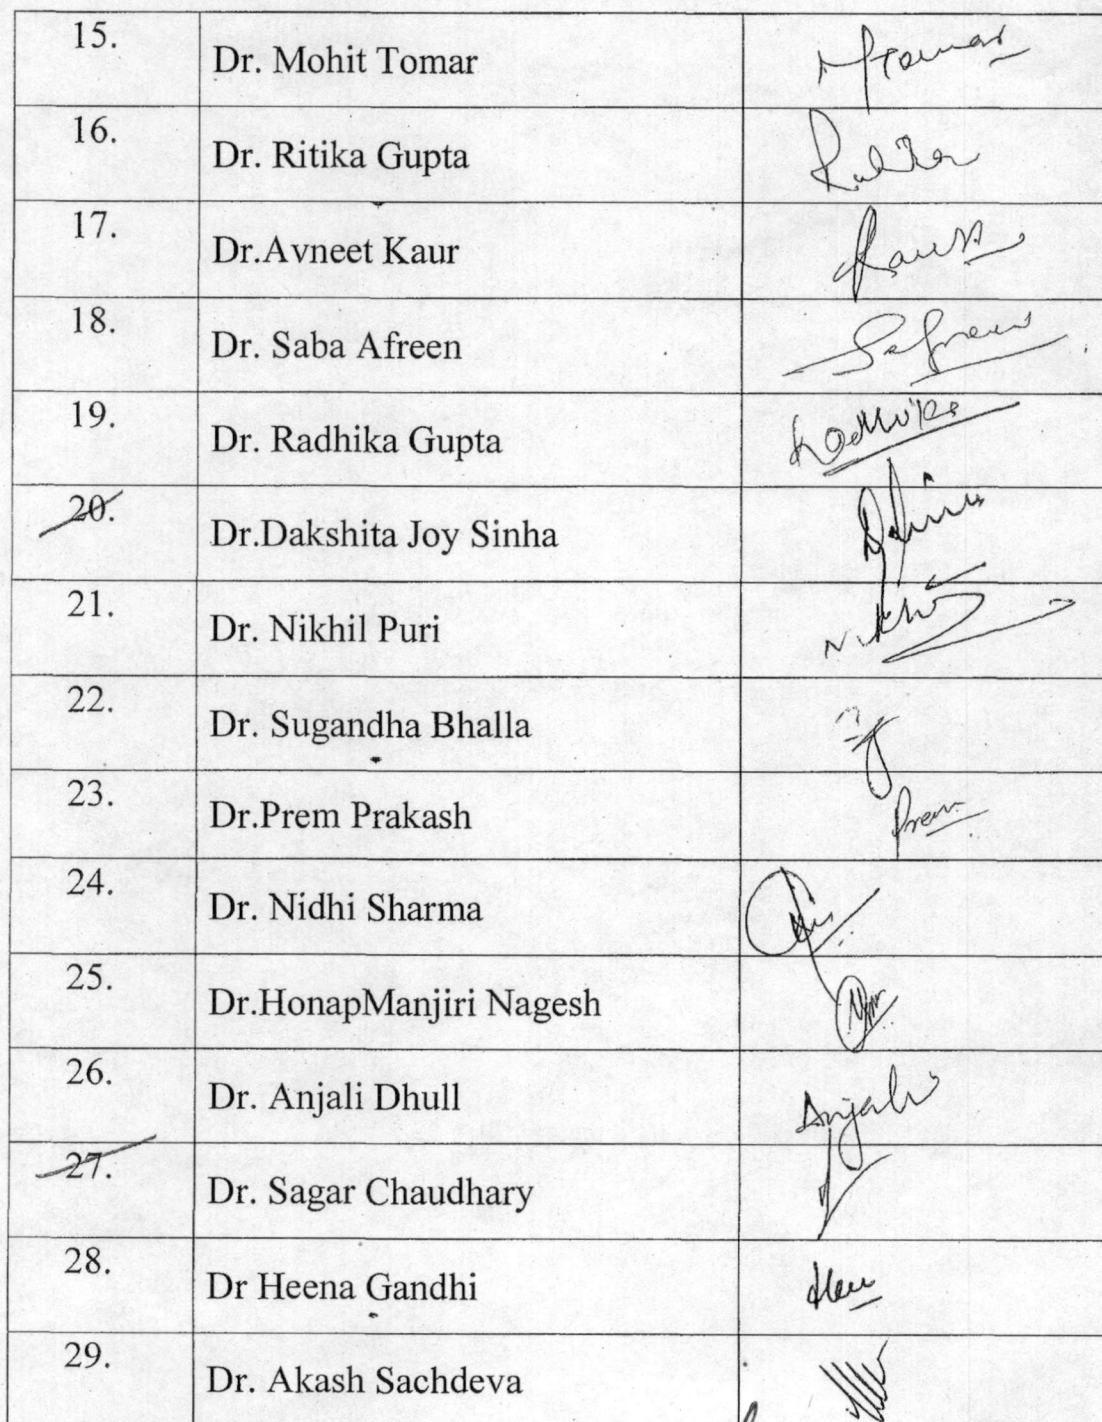 15. Dr. Mohit Tomar MTomar
16. Dr. Ritika Gupta
17. Dr.Avneet Kaur
18. Dr. Saba Afreen
19. Dr. Radhika Gupta Radhika
20. Dr.Dakshita Joy Sinha
21. Dr. Nikhil Puri Nikhil
22. Dr. Sugandha Bhalla
23. Dr.Prem Prakash Prem
24. Dr. Nidhi Sharma
25. Dr.HonapManjiri Nagesh
26. Dr. Anjali Dhull Anjali
27. Dr. Sagar Chaudhary
28. Dr Heena Gandhi
29. Dr. Akash Sachdeva